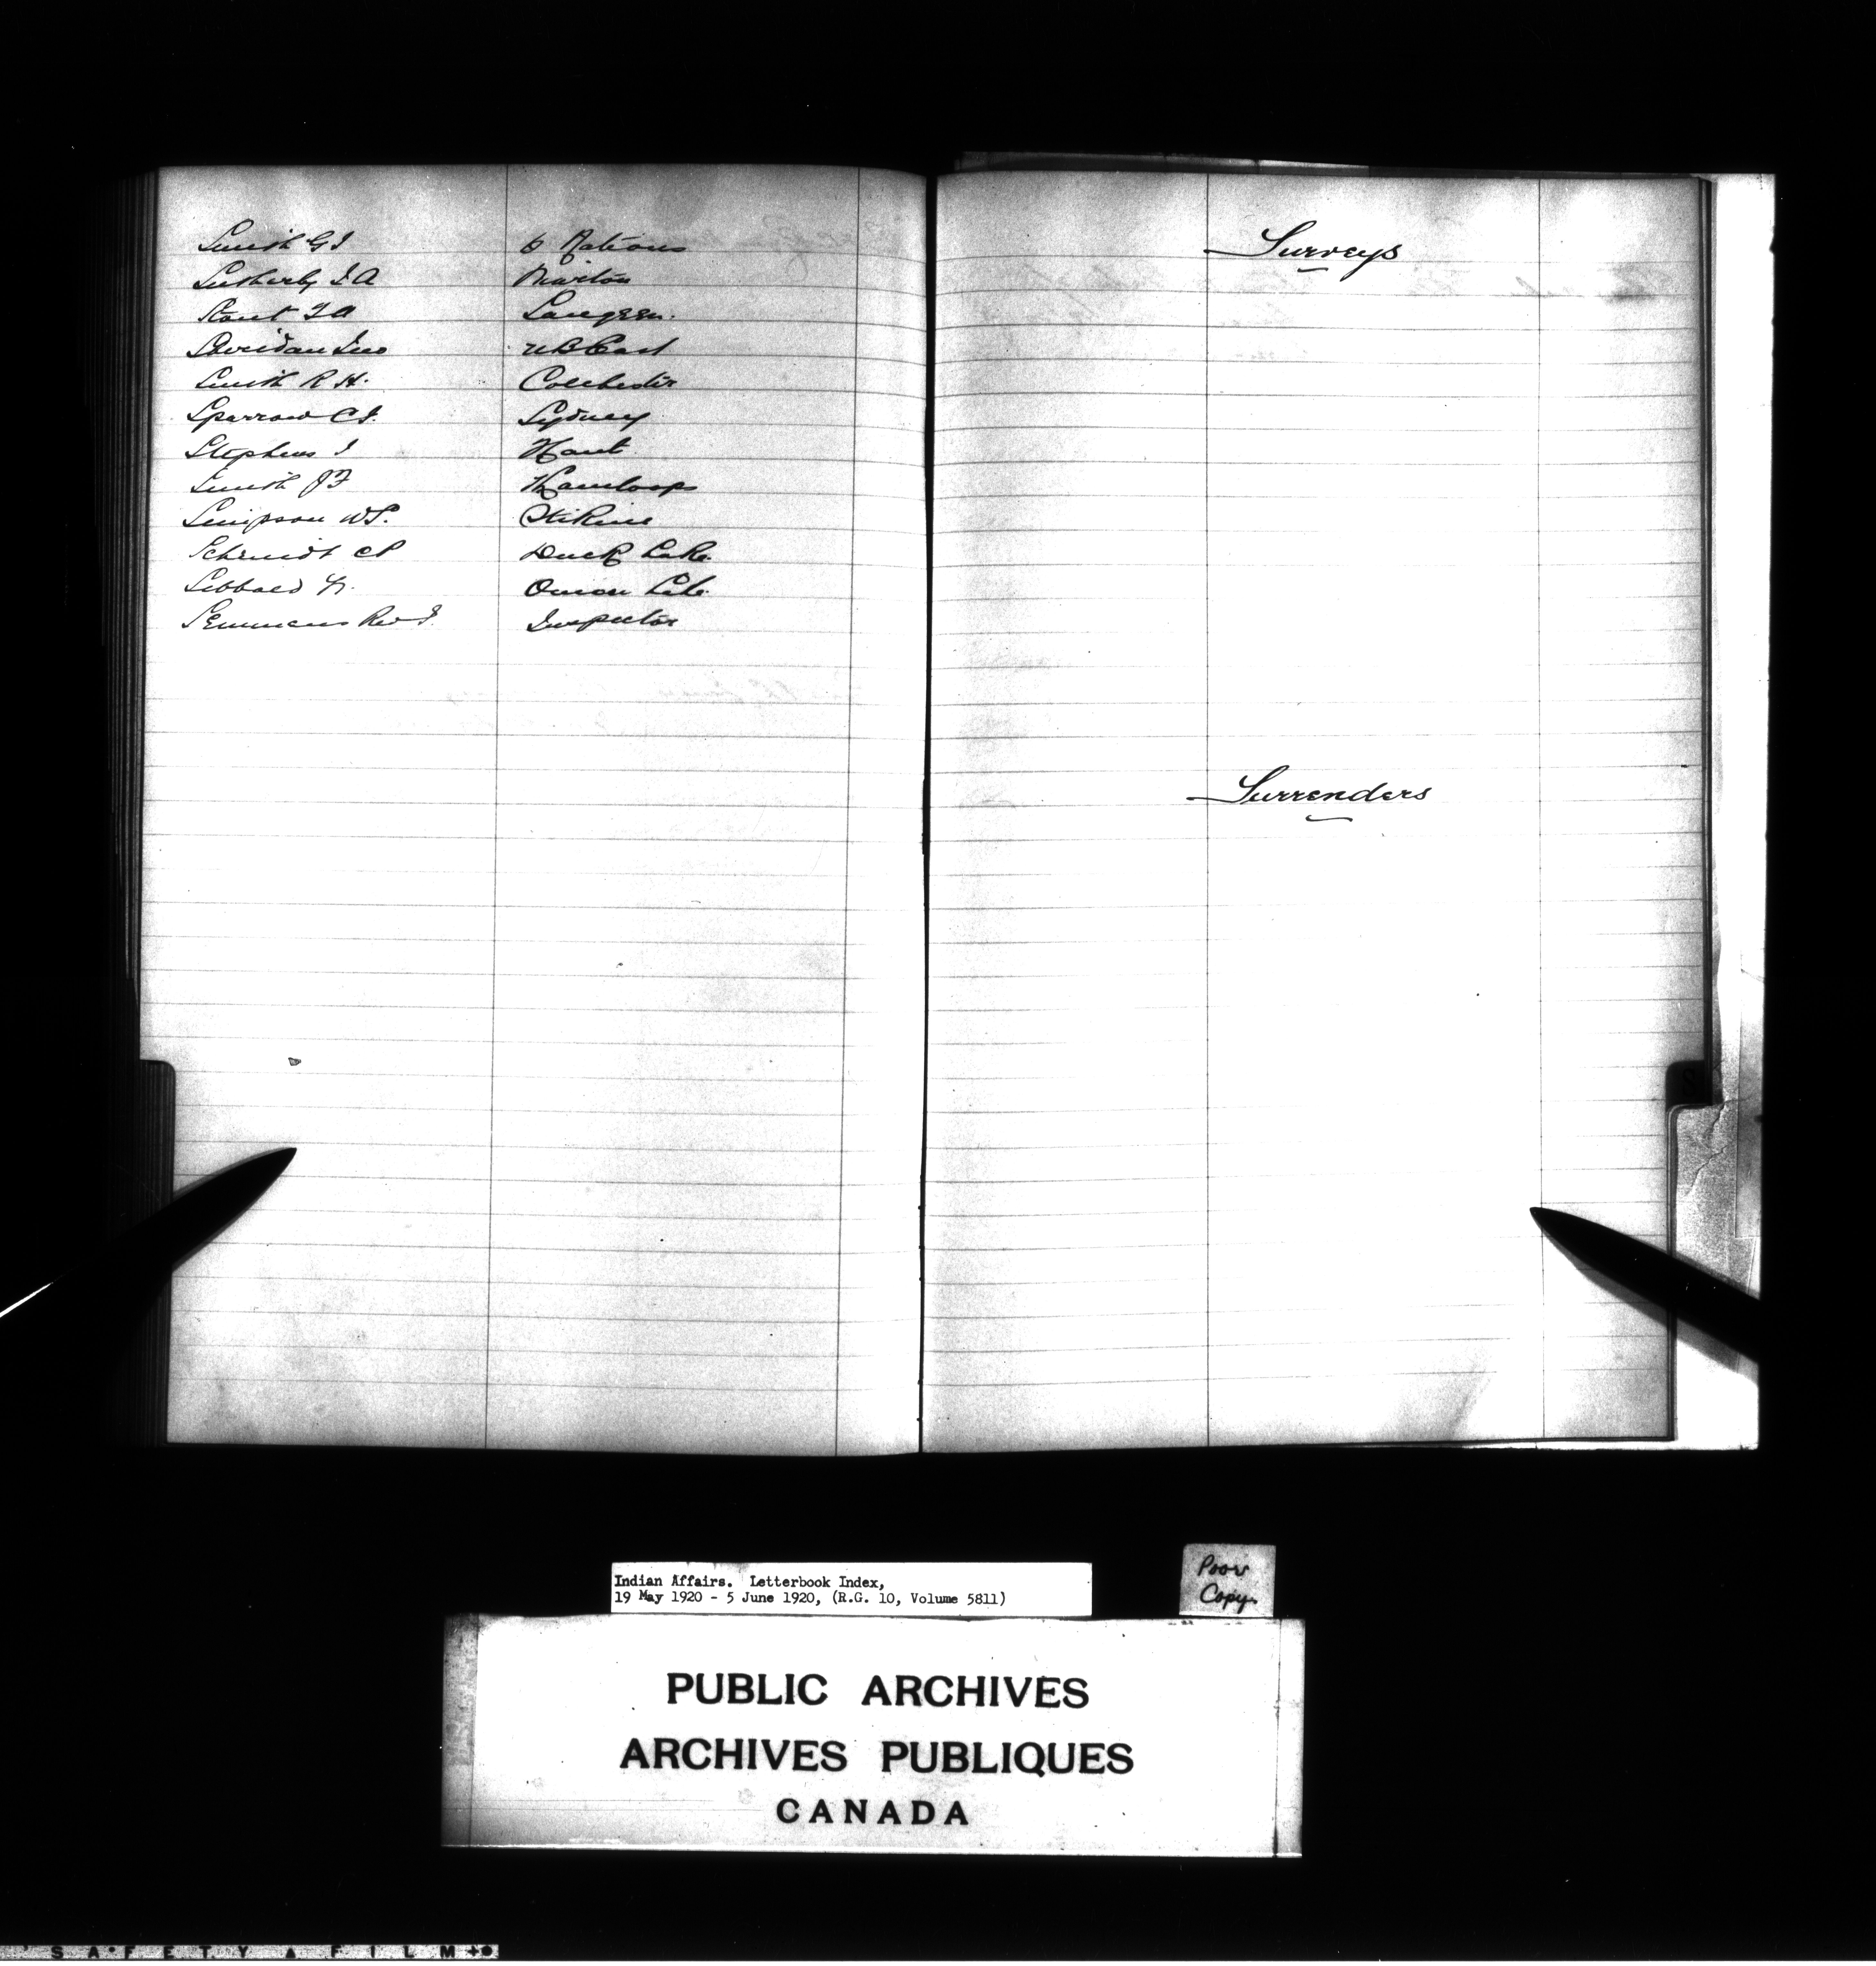 Smith G J 6 Nations
Setherby J A Wiarton
Stout T A Saugeen.
Sheridan Jno N B East
Smith R H. Colchester
Sparrow C J. Sydney
Stephens J Hant
Smith J F Kamloops
Simpson W S. Stikine
Schmidt C P Duck Lake.
Sibbald W. Onion Lake.
Semmens Rev J. Inspector
Surveys
Surrenders
S
Indian Affairs. Letterbook Index,
19 May 1920 - 5 June 1920, (R.G. 10, Volume 5811)
Poor
Copy.
PUBLIC ARCHIVES
ARCHIVES PUBLIQUES
CANADA
SAFETY FILM